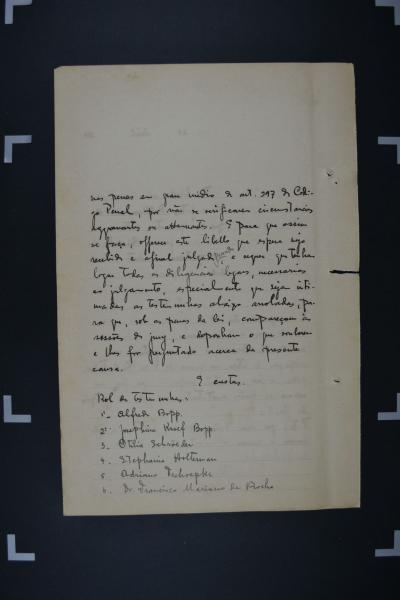 nas penas em grau médio do art. 297 do Codi-
go Penal, por não se verificarem circumstancias
aggravantes ou attenuantes. E para que assim
se faça, offerece este libello que espera seja
recebido e afinal julgado e requer que tenham
logar todas as diligencias legaes, necessarias
ao julgamento, especialmente que sejam inti-
madas, as testemunhas abaixo arroladas, pa-
ra que, sob as penas da lei, compareçam ás
sessões do jury, e deponham o que souberem
e lhes for perguntado acerca da presente
causa.
E custas.
Rol de testemunhas:
1ª Alfredo Bopp.
2ª Josephina Bopp.
3. Otilia Schröder
4. Stephania Holterman
5 Adriano
6. Dr. Francisco Mariano da Rocha